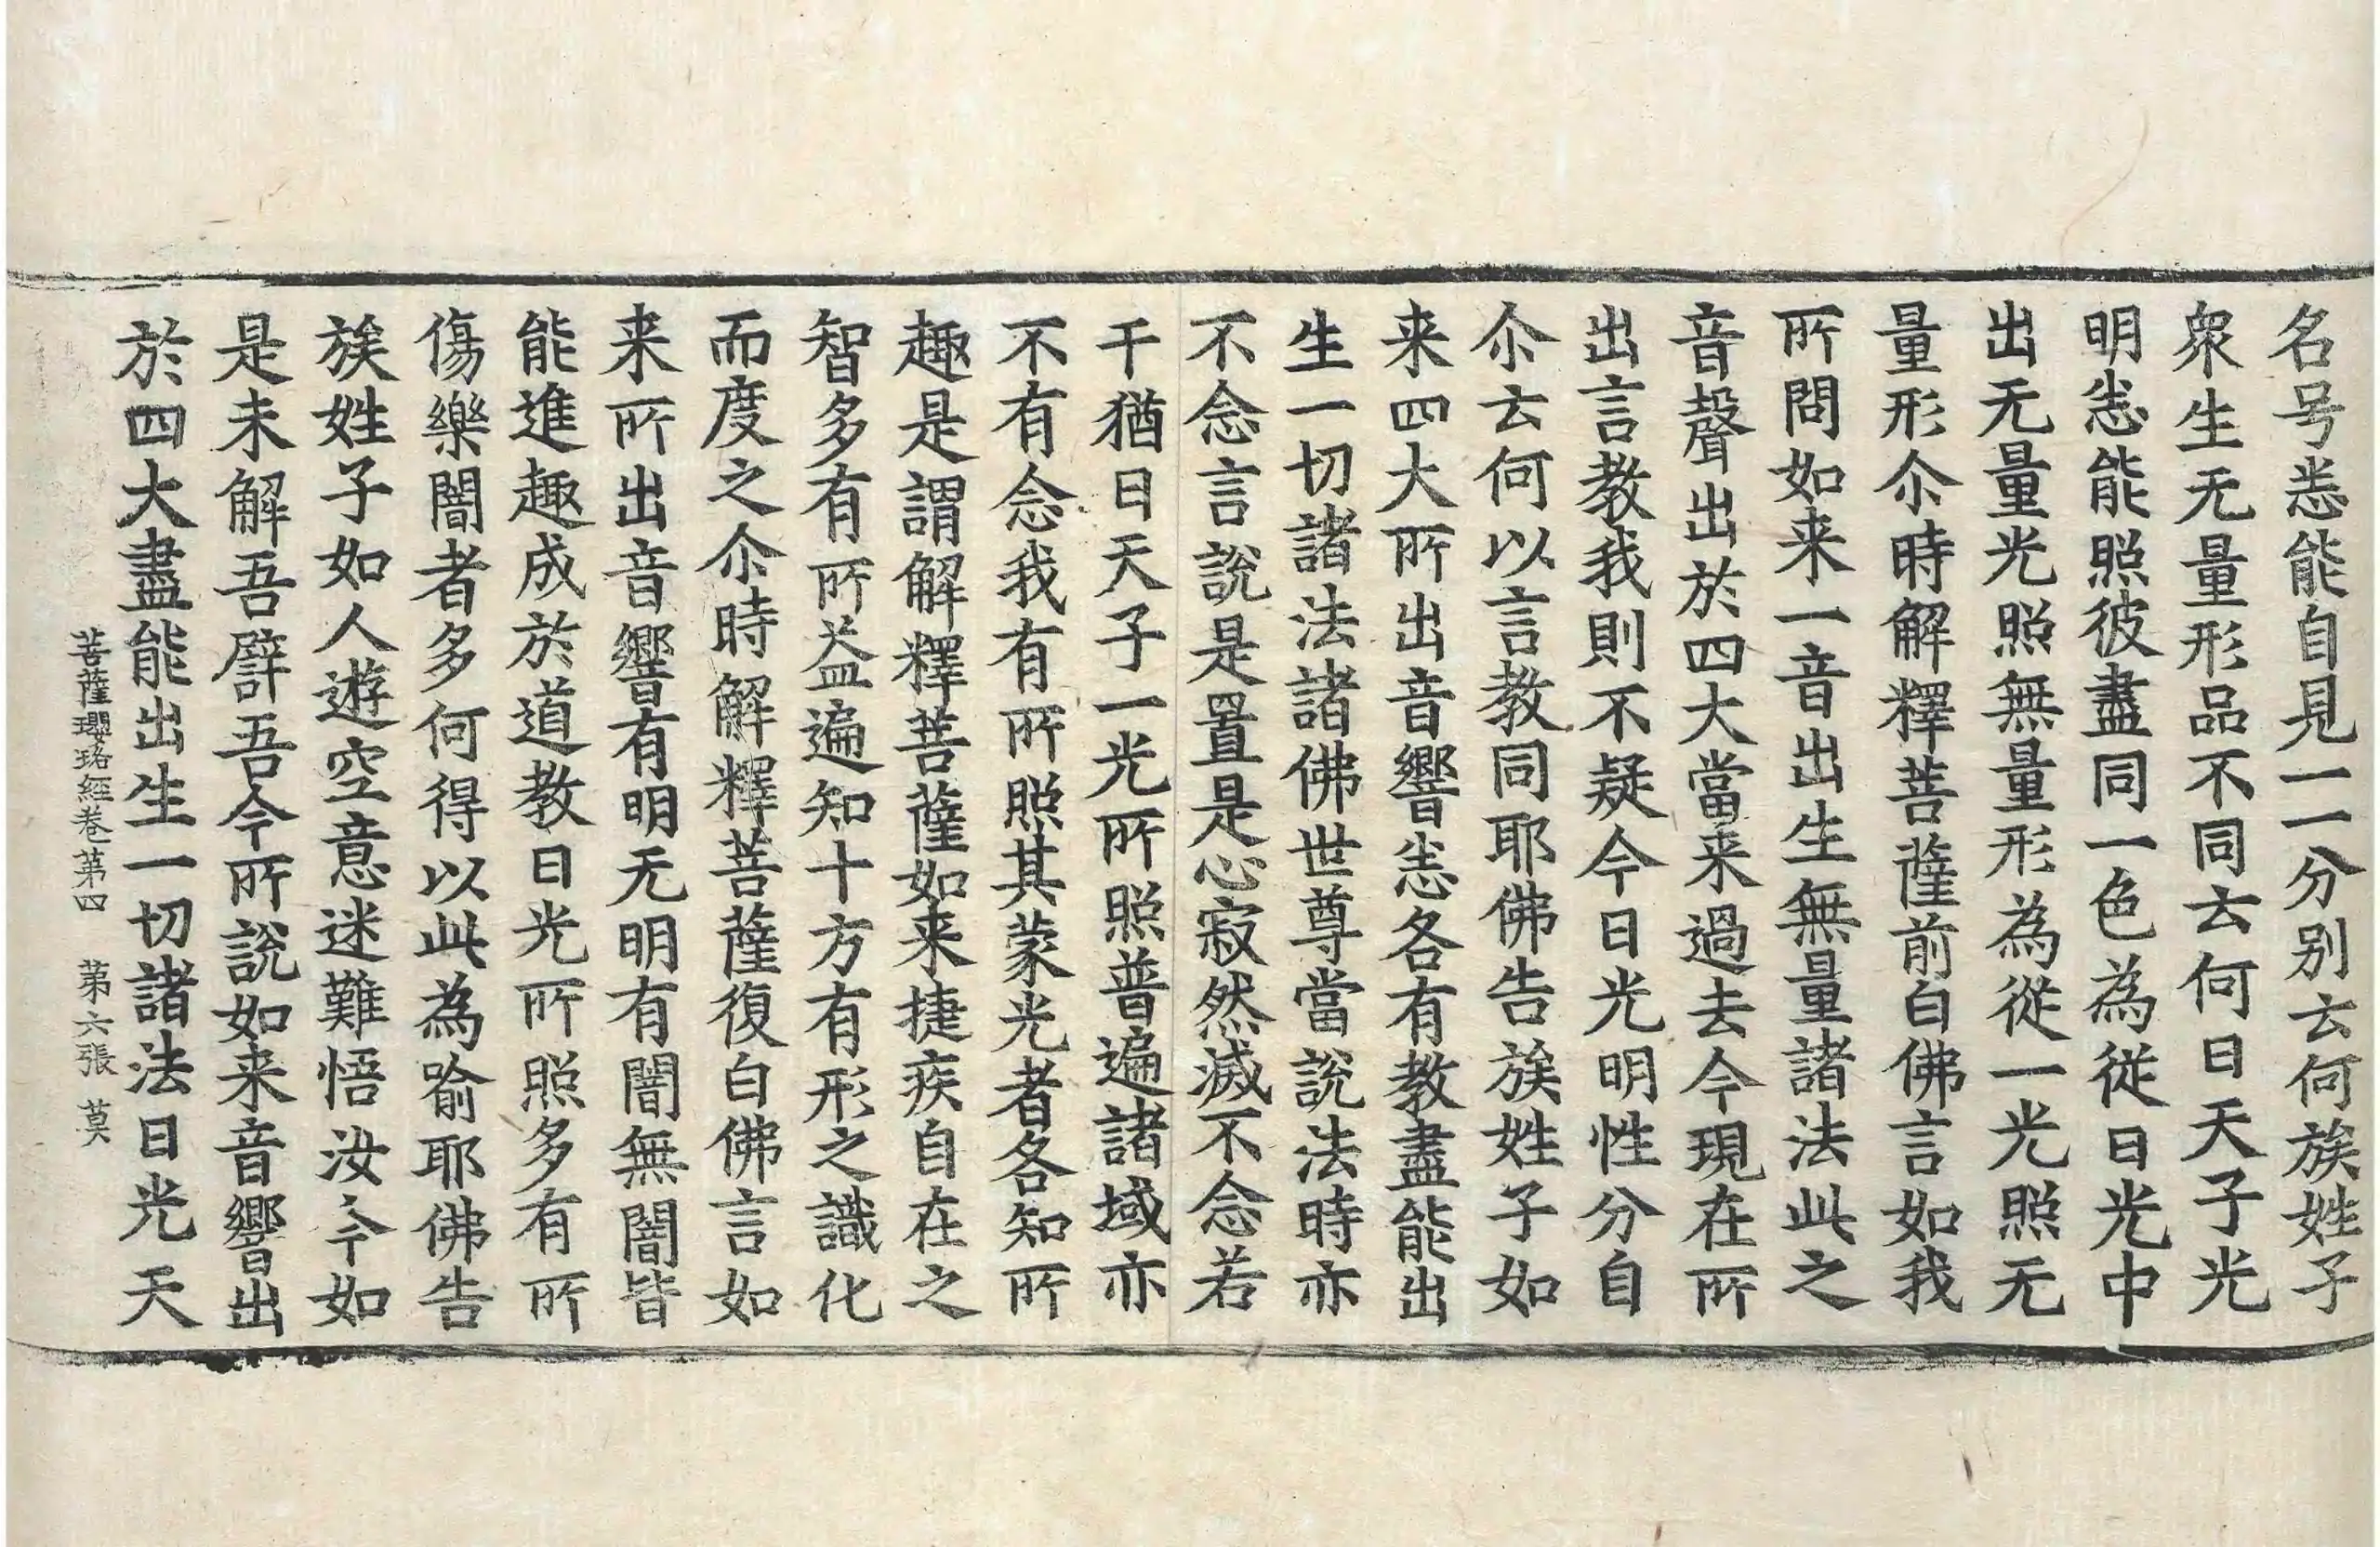 名号悉能自見一一分別云何族姓子
衆生无量形品不同云何日天子光
明悉能照彼盡同一色為従日光中
出无量光照無量形為從一光照无
量形尒時解釋菩薩前白佛言如我
所問如来一音出生無量諸法此之
音聲出於四大當来過去今現在所
出言教我則不疑今日光明性分自
尒云何以言教同耶佛告族姓子如
来四大所出音響悉各有教盡能出
生一切諸法諸佛世尊當說法時亦
不念言說是置是心寂然滅不念若
干猶日天子一光所照普遍諸域亦
不有念我有所照其蒙光者各知所
趣是謂解釋菩薩如来捷疾自在之
智多有所益遍知十方有形之識化
而度之尒時解釋菩薩復白佛言如
来所出音響有明无明有闇無闇皆
能進趣成於道教日光所照多有所
傷樂闇者多何得以此為喻耶佛告
族姓子如人遊空意迷難悟汝今如
是未解吾譬吾今所說如来音響出
於四大盡能出生一切諸法日光天
菩薩瓔珞經卷第四　第六張　莫